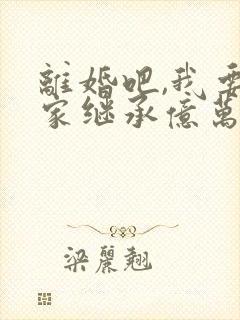 離婚吧,我要
家继承億萬
梁麗翹